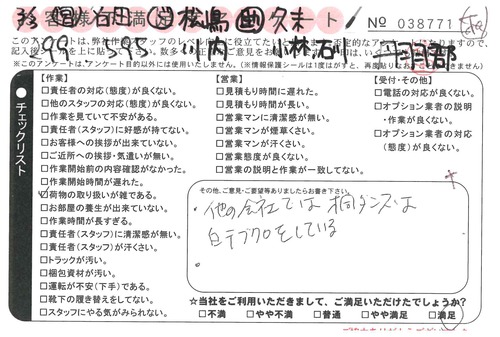 No 038771
このアンケートは、弊社作業スタッフのレベル向上に役立てたいと
記入後シールを上に貼って
※このアンケートは、アンケート目的以外には使用いたしません。(※情報保護シールは1度はがすと、再度貼りなおすことはできません。)
チェックリスト
【作業】
□責任者の対応(態度)が良くない。
□他のスタッフの対応(態度)が良くない。
□作業を見ていて不安がある。
□責任者(スタッフ)に好感が持てない。
□お客様への挨拶が出来ていない。
□ご近所への挨拶・気遣いが無い。
□作業開始前の内容確認がなかった。
□作業開始時間が遅れた。
□荷物の取り扱いが雑である。
□お部屋の養生が出来ていない。
□作業時間が長すぎる。
□責任者(スタッフ)に清潔感が無い。
□責任者(スタッフ)が汗くさい。
□トラックが汚い。
□梱包資材が汚い。
□運転が不安(下手)である。
□靴下の履き替えをしてない。
□スタッフにやる気がみられない。
【営業】
□見積もり時間に遅れた。
□見積もり時間が長い。
□営業マンに清潔感が無い。
□営業マンが煙草くさい。
□営業マンが汗くさい。
□営業態度が良くない。
□営業の説明と作業が一致してない。
【受付・その他】
□電話の対応が良くない。
□オプション業者の説明
・作業が良くない。
□オプション業者の対応
(態度)が良くない。
その他、ご意見・ご要望等ありましたらお書き下さい。
他の会社では桐ダンスは
白テブクロをしている
☆当社をご利用いただきまして、ご満足いただけたでしょうか?
□不満 □やや不満 □普通 □やや満足 □満足